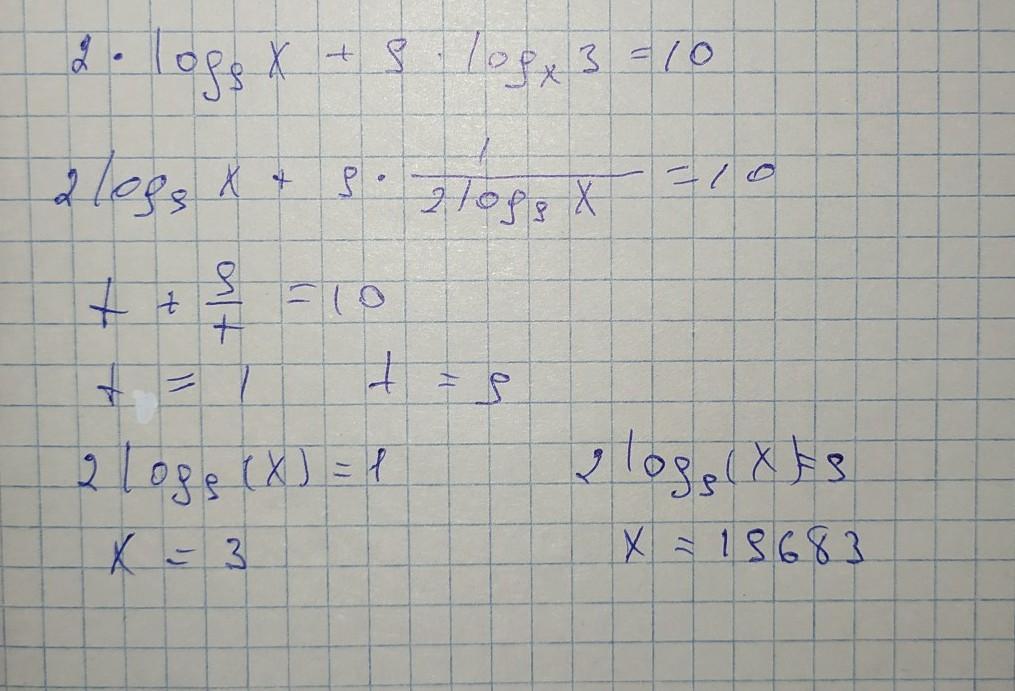 2 · log₉ x + 9 · logₓ 3 = 10
2 log₉ x + 9 · 1/(2 log₉ x) = 10
t + 9/t = 10
t = 1 t = 9
2 log₉ (x) = 1 2 log₉ (x) = 9
x = 3 x = 19683